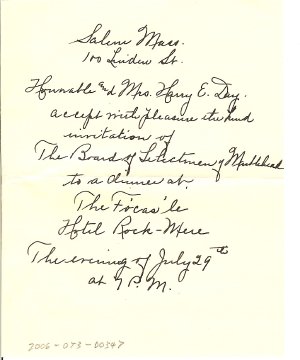 Salem Mass.
100 Linden St.
Honorable and Mrs. Harry E. Day.
accept with pleasure the kind
invitation of
The Board of Selectmen of Marblehead
to a dinner at
The Fo'cas'le
Hotel Rock-Mere
The evening of July 29th
at 7 P.M.
2006-073-D0347